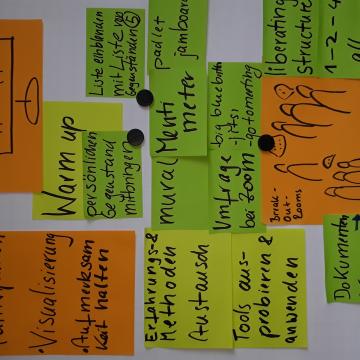 Liste einblenden
mit Liste von
Gegenständen
padlet
jamboard
liberating
structure
1-2-4
all
Warm up
persönlichen
Gegenstand
mitbringen
Menti
meter
mural
big blue button
Umfrage
bei Zoom
Break-
Out-
Rooms
• Visualisierung
• Aufmerksam
keit halten
Erfahrungs- &
Methoden
Austausch
Tools aus-
probieren &
anwenden